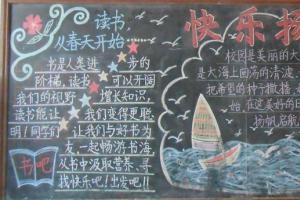 读书
从春天开始
书是人类进步的
阶梯，读书可以开阔
我们的视野，增长知识，
读书能让我们变得更聪
明！同学们，让我们与好书为
友，一起畅游书海，
从书中汲取营养、寻
找快乐吧！出发吧！！
书吧
快乐扬
校园是美丽的大
是大海上面的清波
把希望的种子撒播
在这美好的
扬帆启航